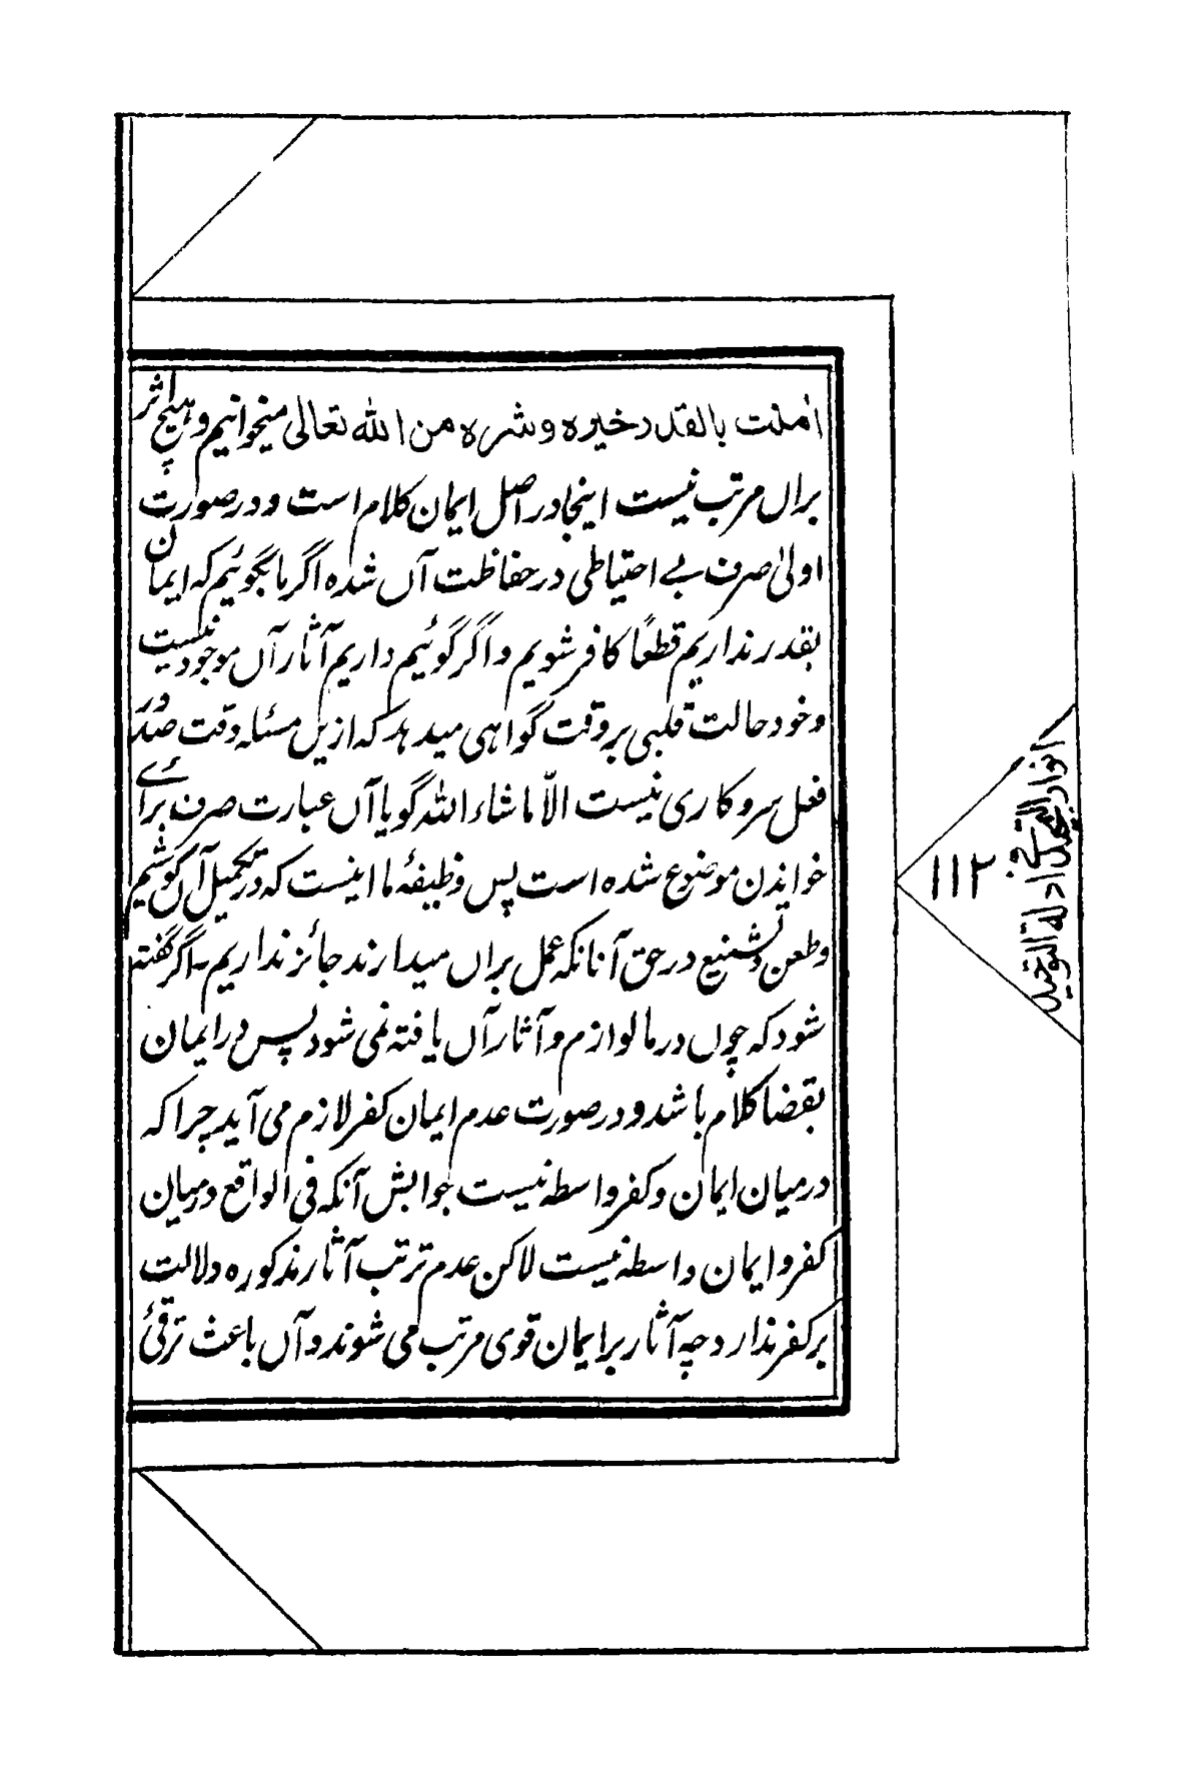 اٰمنت بالقدر خیره وشره من الله تعالیٰ میخوانیم و هیچ اثر
براں مرتب نیست اینجا در اصل ایمان کلام است و در صورت
اولیٰ صرف بے احتیاطی در حفاظت آں شده اگر ما بگوئیم که ایمان
بقدر نداریم قطعًا کافر شویم و اگر گوئیم داریم آثار آں موجود نیست
و خود حالت قلبی بر وقت گواهی میدهد که ازیں مسئله وقت صدور
فعل سروکاری نیست الّا ماشاء الله گویا آں عبارت صرف برائے
خواندن موضوع شده است پس وظیفۂ ما اینست که در تکمیل آں کوشیم
و طعن و تشنیع در حق آنانکه عمل براں میدارند جائز نداریم ـ اگر گفته
شود که چوں در ما لوازم و آثار آں یافته نمی شود پس در ایمان
بقضا کلام باشد و در صورت عدم ایمان کفر لازم می آید چرا که
درمیان ایمان و کفر واسطه نیست جوابش آنکه فی الواقع درمیان
کفر و ایمان واسطه نیست لاکن عدم ترتب آثار مذکوره دلالت
بر کفر ندارد چه آثار بر ایمان قوی مرتب می شوند و آں باعث ترقئ
۱۱۲
انوار التمجید فی ادلة التوحید